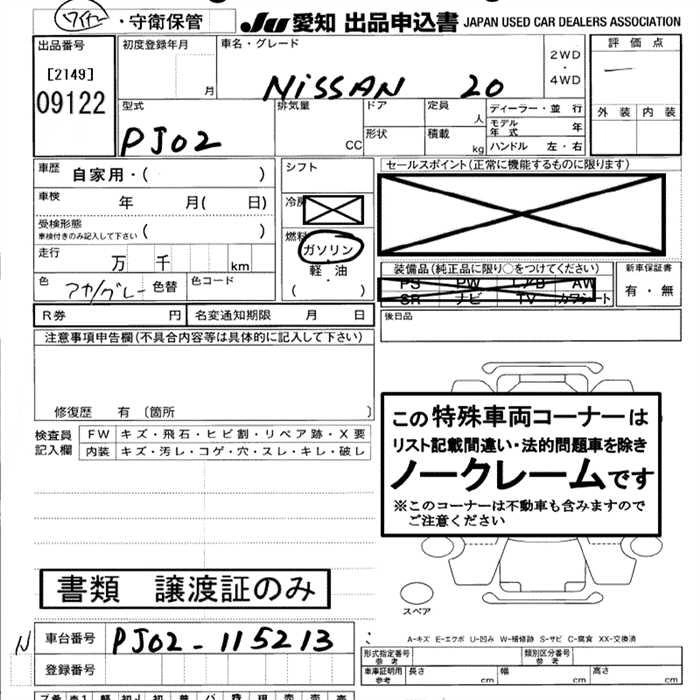 ワイヤー・守衛保管
JU 愛知 出品申込書 JAPAN USED CAR DEALERS ASSOCIATION
出品番号
[2149]
09122
初度登録年月
月
車名・グレード
NISSAN 20
2WD
・
4WD
評価点
一
外装 内装
型式
PJ02
排気量
CC
ドア
形状
定員
人
積載
kg
ディーラー・並 行
モデル年式 年
ハンドル 左・右
車歴 自家用・( )
車検 年 月( 日)
受検形態
車検付きのみ記入して下さい ( )
走行 万 千 km
色 アカ/グレー 色替 色コード
シフト
冷房
燃料
ガソリン
・
軽 油
( )
セールスポイント(正常に機能するものに限ります)
装備品(純正品に限り○をつけてください)
PS PW エアB AW
SR ナビ TV カワシート
新車保証書
有・無
R券 円 名変通知期限 月 日
後日品
注意事項申告欄(不具合内容等は具体的に記入して下さい)
修復歴 有〔箇所 〕
検査員
記入欄
FW キズ・飛石・ヒビ割・リペア跡・X要
内装 キズ・汚レ・コゲ・穴・スレ・キレ・破レ
この特殊車両コーナーは
リスト記載間違い・法的問題車を除き
ノークレームです
※このコーナーは不動車も含みますので
ご注意ください
書類 譲渡証のみ
スペア
N 車台番号 PJ02-115213
登録番号
A-キズ E-エクボ U-凹み W-補修跡 S-サビ C-腐食 XX-交換済
形式指定番号
参考
類別区分番号
参考
車庫証明用
参考
長さ cm 幅 cm 高さ cm